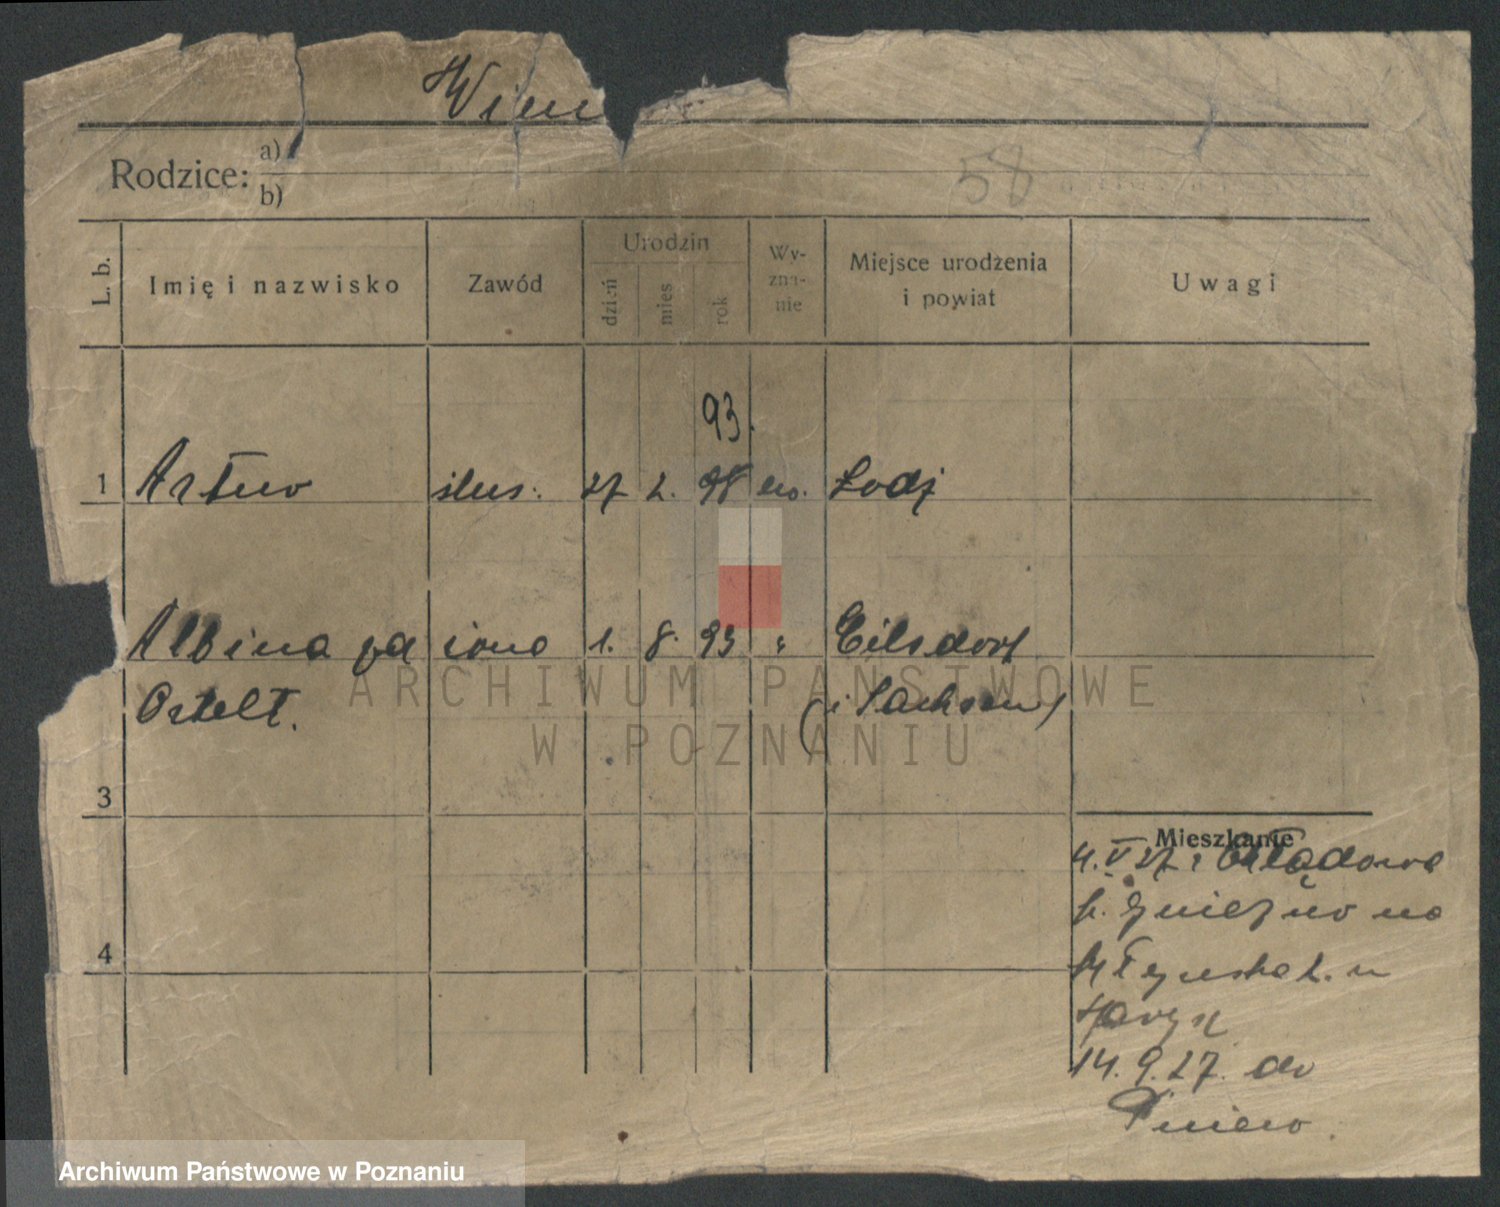 Wien
Rodzice: a)
b)
58
L. b.
Imię i nazwisko
Zawód
Urodzin
dzień
mies
rok
Wy-
zna-
nie
Miejsce urodzenia
i powiat
Uwagi
93.
1 Artur ślus. 27 2. 98 ew. Lodz
Albina zd żona 1. 8. 93 " Eilsdorf
Ortelt. (i Sachsen)
3
Mieszkanie
4. V 27 z
p. Gniezno na
4
14. 9. 27. do
Pniew.
ARCHIWUM PAŃSTWOWE
W POZNANIU
Archiwum Państwowe w Poznaniu